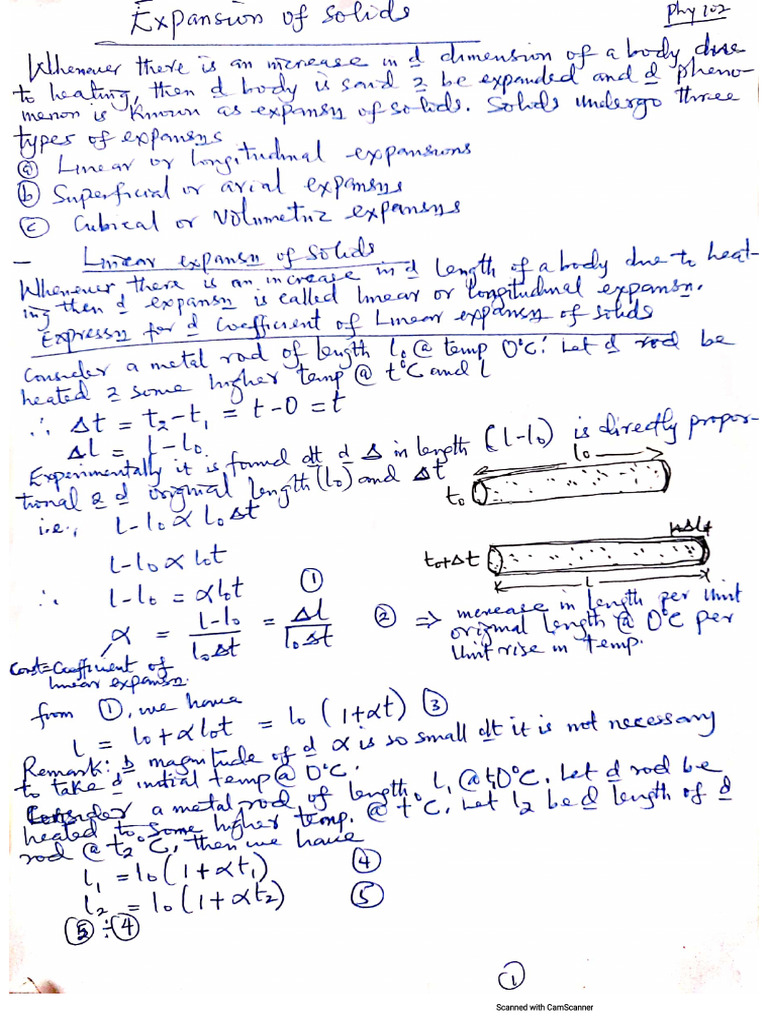 Expansion of solids
Phy 102
Whenever there is an increase in d dimension of a body due
to heating, then d body is said 2 be expanded and d pheno-
menon is known as expansn of solids. Solids undergo three
types of expansns
(a) Linear or longitudinal expansions
(b) Superficial or axial expansns
(c) Cubical or Volumetric expansns
— Linear expansn of solids
Whenever there is an increase in d length of a body due to heat-
ing then d expansn is called linear or longitudinal expansn.
Expressn for d Coefficient of Linear expansn of solids
Consider a metal rod of length l₀ @ temp 0°C. Let d rod be
heated 2 some higher temp @ t°C and l
∴ Δt = t₂-t₁ = t-0 = t
Δl = l-l₀.
Experimentally it is found dt d Δ in length (l-l₀) is directly propor-
tional 2 d original length (l₀) and Δt
i.e., l-l₀ ∝ l₀Δt
l-l₀ ∝ l₀t
∴ l-l₀ = αl₀t (1)
α = l-l₀/l₀Δt = Δl/l₀Δt (2) ⇒ increase in length per unit
original length @ 0°C per
unit rise in temp.
Const=Coefficient of
linear expansn.
l₀
t₀
Δl
t₀+Δt
L
from (1), we have
l = l₀+αl₀t = l₀(1+αt) (3)
Remark: D magnitude of d α is so small dt it is not necessary
to take d initial temp @ 0°C.
Consider a metal rod of length l₁ @ t₁0°C. Let d rod be
heated to some higher temp. @ t°C. Let l₂ be d length of d
rod @ t₂°C, then we have
l₁ = l₀(1+αt₁) (4)
l₂ = l₀(1+αt₂) (5)
(5) ÷ (4)
(1)
Scanned with CamScanner